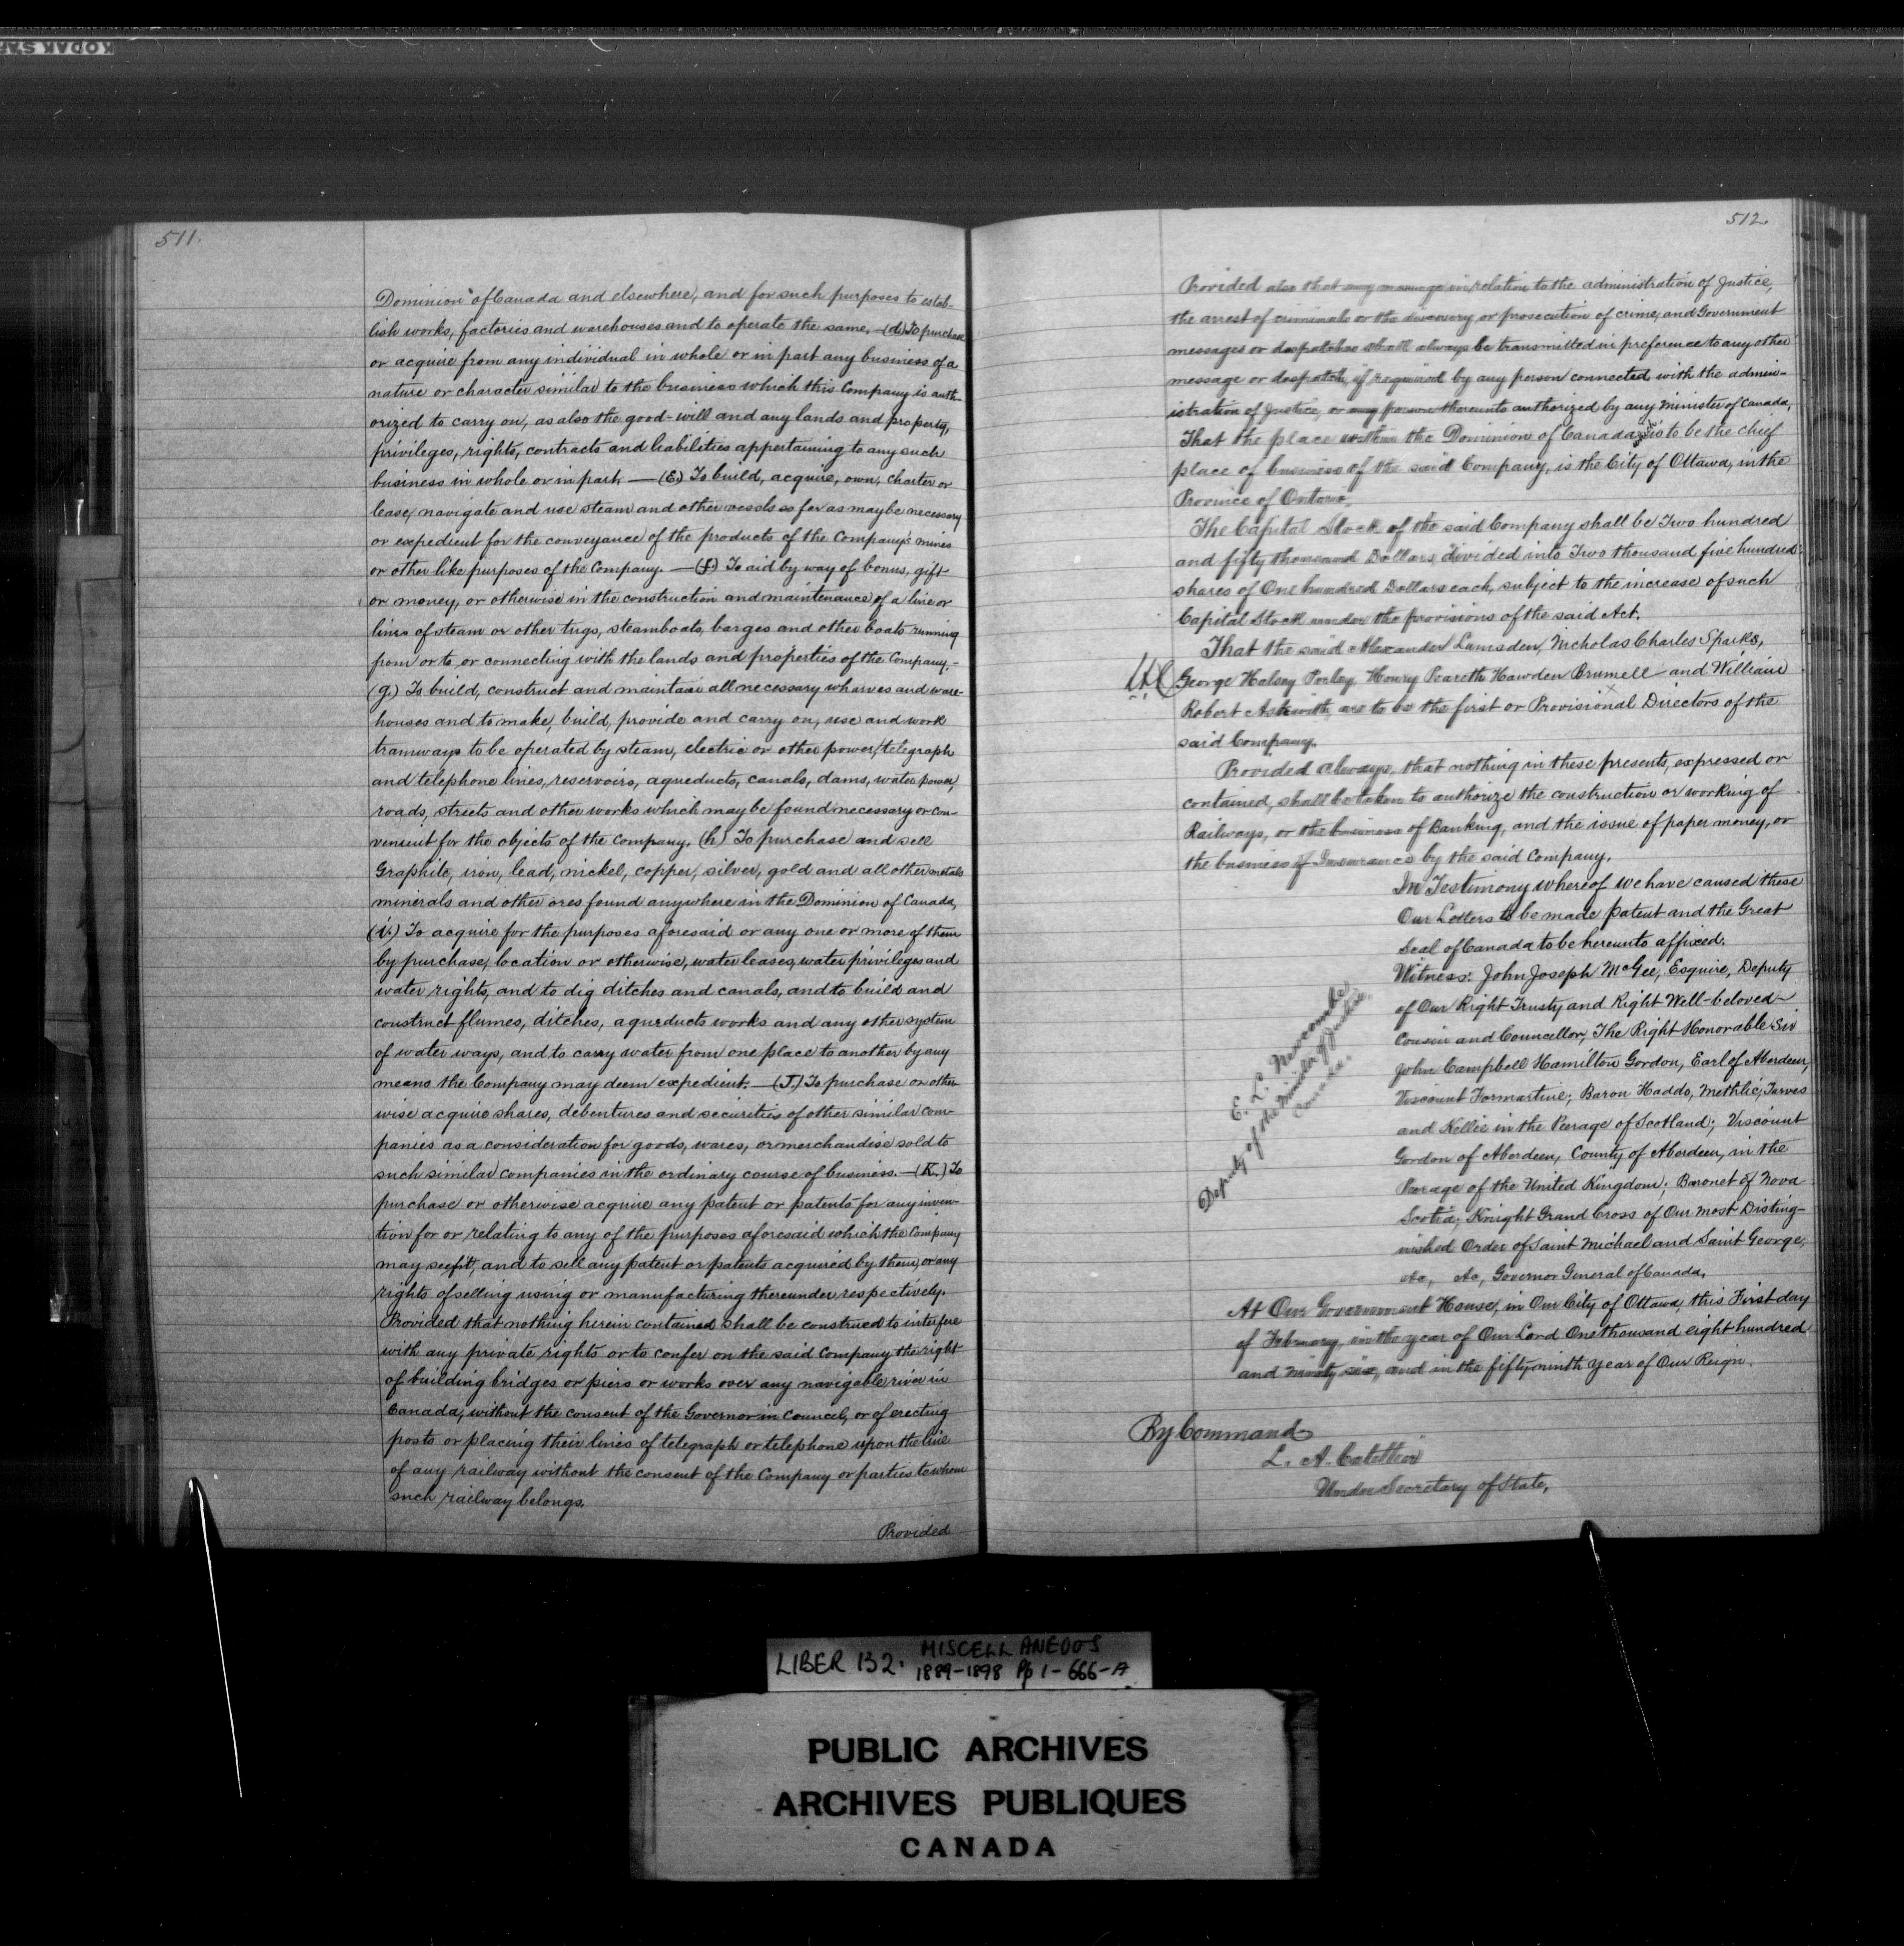 511.
Dominion of Canada and elsewhere, and for such purposes to estab-
lish works, factories and warehouses and to operate the same. — (d.) To purchase
or acquire from any individual in whole or in part any business of a
nature or character similar to the business which this Company is auth-
orized to carry on, as also the good-will and any lands and property,
privileges, rights, contracts and liabilities appertaining to any such
business in whole or in part. — (E.) To build, acquire, own, charter or
lease, navigate and use steam and other vessels so far as may be necessary
or expedient for the conveyance of the products of the Company's mines
or other like purposes of the Company. — (f.) To aid by way of bonus, gift
or money, or otherwise in the construction and maintenance of a line or
lines of steam or other tugs, steamboats, barges and other boats running
from or to, or connecting with the lands and properties of the Company, -
(g.) To build, construct and maintain all necessary wharves and ware-
houses and to make, build, provide and carry on, use and work
tramways to be operated by steam, electric or other power, telegraph
and telephone lines, reservoirs, aqueducts, canals, dams, water power,
roads, streets and other works which may be found necessary or con-
venient for the objects of the Company. (h) To purchase and sell
Graphite, iron, lead, nickel, copper, silver, gold and all other metals
minerals and other ores found anywhere in the Dominion of Canada,
(i.) To acquire for the purposes aforesaid or any one or more of them
by purchase, location or otherwise, water leases, water privileges and
water rights, and to dig ditches and canals, and to build and
construct flumes, ditches, aqueducts works and any other system
of water ways, and to carry water from one place to another by any
means the Company may deem expedient. — (J.) To purchase or other-
wise acquire shares, debentures and securities of other similar com-
panies as a consideration for goods, wares, or merchandise sold to
such similar companies in the ordinary course of business. — (K.) To
purchase or otherwise acquire any patent or patents for any inven-
tion for or relating to any of the purposes aforesaid which the Company
may see fit, and to sell any patent or patents acquired by them, or any
rights of selling using or manufacturing thereunder respectively.
Provided that nothing herein contained shall be construed to interfere
with any private rights or to confer on the said Company the right
of building bridges or piers or works over any navigable river in
Canada, without the consent of the Governor in Council, or of erecting
posts or placing their lines of telegraph or telephone upon the line
of any railway without the consent of the Company or parties to whom
such railway belongs.
Provided
512.
Provided also that any message in relation to the administration of Justice,
the arrest of criminals or the discovery or prosecution of crime, and Government
messages or despatches shall always be transmitted in preference to any other
message or despatch, if required by any person connected with the admin-
istration of Justice, or any person thereunto authorized by any Minister of Canada,
That the place within the Dominion of Canada is to be the chief
place of business of the said Company, is the City of Ottawa, in the
Province of Ontario.
The Capital Stock of the said Company shall be Two hundred
and fifty thousand Dollars, divided into Two thousand five hundred
shares of One hundred Dollars each, subject to the increase of such
Capital Stock under the provisions of the said Act.
That the said Alexander Lumsden, Nicholas Charles Sparks,
George Halsey Perley, Henry Peareth Hawden Brumell and William
Robert Askwith, are to be the first or Provisional Directors of the
said Company.
Provided always, that nothing in these presents, expressed or
contained, shall be taken to authorize the construction or working of
Railways, or the business of Banking, and the issue of paper money, or
the business of Insurance by the said Company.
In Testimony whereof we have caused these
Our Letters to be made patent and the Great
Seal of Canada to be hereunto affixed.
Witness: John Joseph McGee, Esquire, Deputy
of Our Right Trusty and Right Well-beloved
Cousin and Councellor, The Right Honorable Sir
John Campbell Hamilton Gordon, Earl of Aberdeen,
Viscount Formartine; Baron Haddo, Methlic, Tarves
and Kellie in the Peerage of Scotland; Viscount
Gordon of Aberdeen, County of Aberdeen, in the
Peerage of the United Kingdom; Baronet of Nova
Scotia; Knight Grand Cross of Our Most Disting-
uished Order of Saint Michael and Saint George,
&c, &c, Governor General of Canada.
E. L. Newcombe
Deputy of the Minister of Justice
Canada.
At Our Government House, in Our City of Ottawa, this First day
of February, in the year of Our Lord One thousand eight hundred
and Ninety six, and in the fifty ninth year of Our Reign.
By Command
L. A. Catellier
Under Secretary of State,
LIBER 132. MISCELLANEOUS
1889-1898 Pp 1-666-A
PUBLIC ARCHIVES
ARCHIVES PUBLIQUES
CANADA